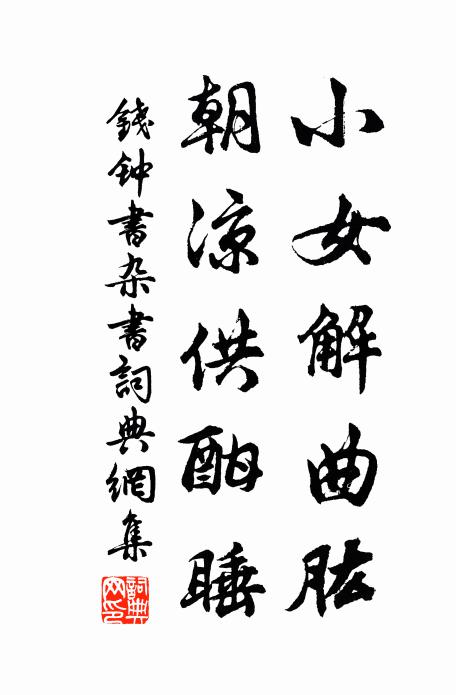 小女解曲肱
朝凉供酣睡
錢钟書杂書詞典網集
詞典网印